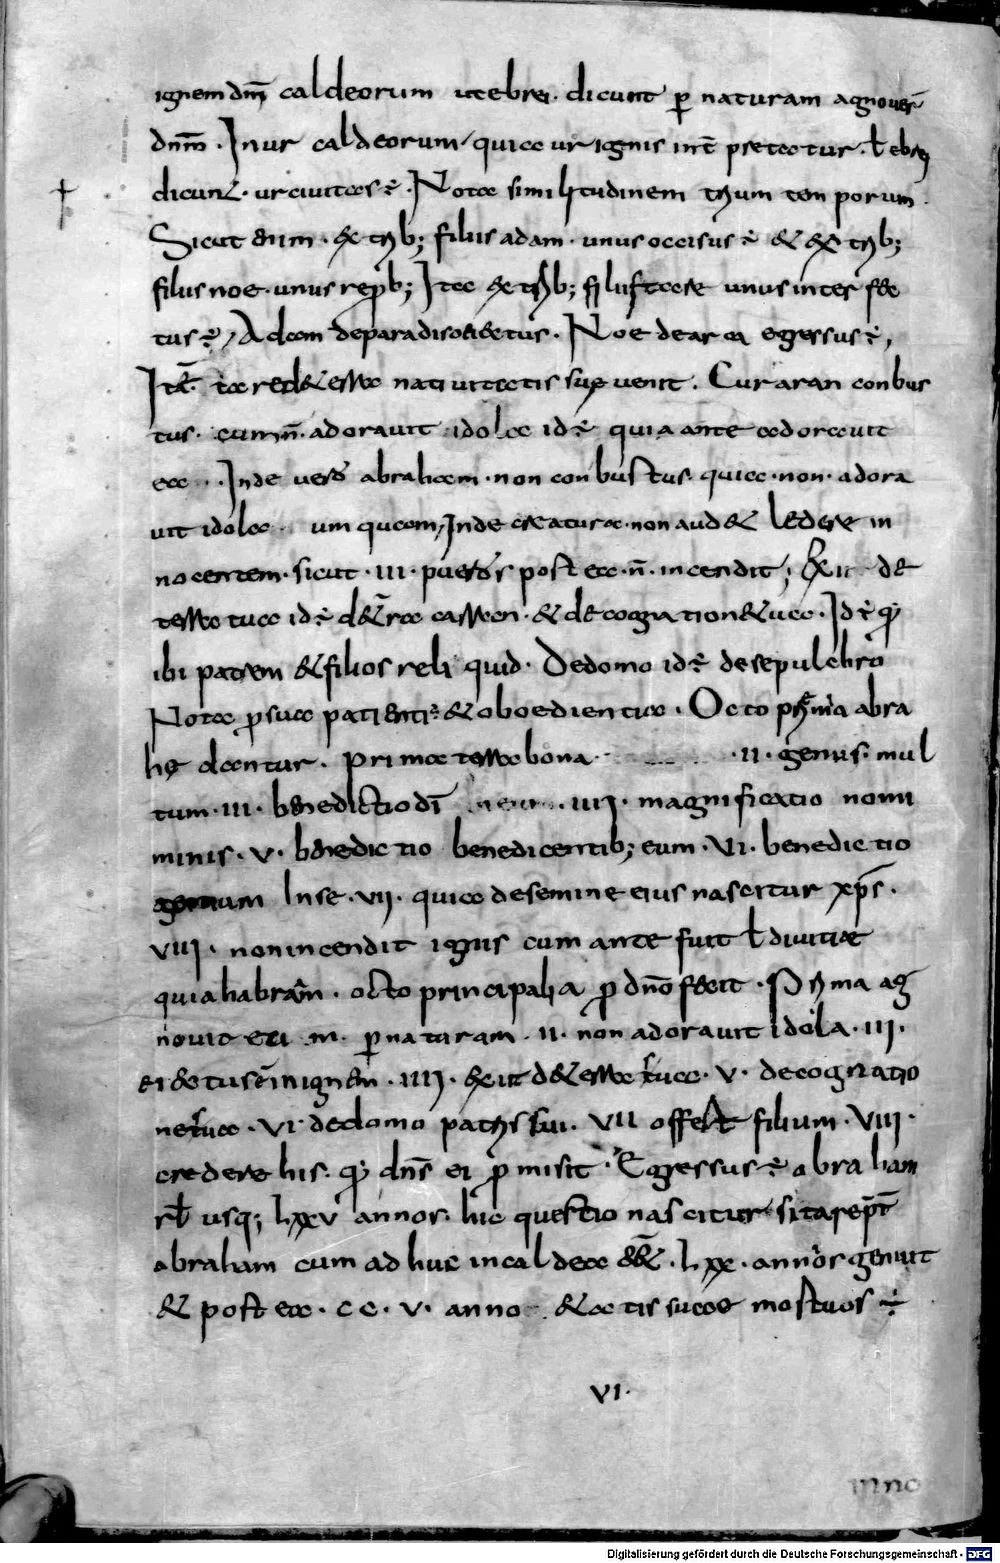 ignem dm̄ caldeorum ut ebrei · dicunt p̱ naturam agnouer̄
dnm̄ · In ur caldeorum, quia ur ignis int̄ pretatur · ł ebrei
dicunt · ur ciuitas ÷ · Nota similitudinem trium temporum ·
Sicut enim · ex trib; filiis adam · unus occisus ÷ & ex trib;
filiis noe · unus reprob; Ita ex trib; filiis tare unus interfec
tus ÷, Adam de paradiso eiectus · Noe de arca egressus ÷,
terre natiuitatis sue uenit · Cur aran conbus
tus · adorauit idola id ÷ quia ante adorauit
ea · Inde uero abraham · non conbustus · quia · non · adora
uit idola umquam, Inde creatura · non aud& ledere in
nocentem · sicut · III · pueros postea · n̄ · incendit; Exii de
terra tua id ÷ de t̄ra carren · & de cognation& tua · Id ÷ q
ibi patrem & filios reliquid · De domo id ÷ de sepulchro
Nota p sua patienti & oboedientia · Octo p̱mia abra
he dantur · Prima terra bona · II · genus · mul
tum · III · benedictio dī · IIII · magnificatio nomi
minis · V · benedictio benedicentib; eum · VI · benedictio
gentium In se · VII · quia de semine eius nascitur xp̄s ·
VIII · non incendit ignis cum ante fuit ł diuitiae
quia habram · octo principalia p dnō fecit · Prima ag
nouit eum · p̱ naturam · II · non adorauit idola · III ·
eiectus ē in ignem · IIII · exiit de terra sua · V · de cognatio
ne sua · VI · de domo patris sui · VII offert filium · VIII ·
credere his · q dns̄ ei p misit · Egressus ÷ abraham
usq; LXXV annos · hic questio nascitur si tare p̄t
abraham cum adhuc in caldea ēē& · LXX · annos genuit
& postea · CC · V · anno &atis suae mortuos ÷
VI ·